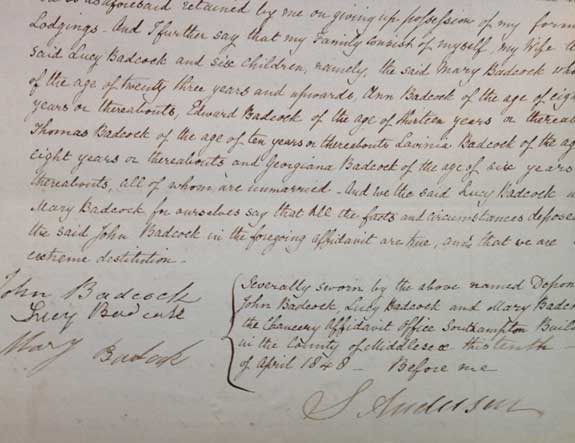 aforesaid retained by me on giving up possession of my form
Lodgings. And I further say that my Family consist of myself, my Wife
said Lucy Badcock and six children, namely, the said Mary Badcock who
of the age of twenty three years and upwards, Ann Badcock of the age of eigh
years or thereabouts, Edward Badcock of the age of thirteen years or thereab
Thomas Badcock of the age of ten years or thereabouts Lavinia Badcock of the ag
eight years or thereabouts and Georgiana Badcock of the age of six years
thereabouts, all of whom are unmarried - And we the said Lucy Badcock
Mary Badcock for ourselves say that all the facts and circumstances depose
the said John Badcock in the foregoing affidavit are true, and that we are
extreme destitution -
John Badcock
Lucy Badcock
Mary Badcock
Severally sworn by the above named Depon
John Badcock, Lucy Badcock and Mary Badco
the Chancery Affidavit Office Southampton Buil
in the County of Middlesex this tenth -
of April 1848 - Before me
S Anderson